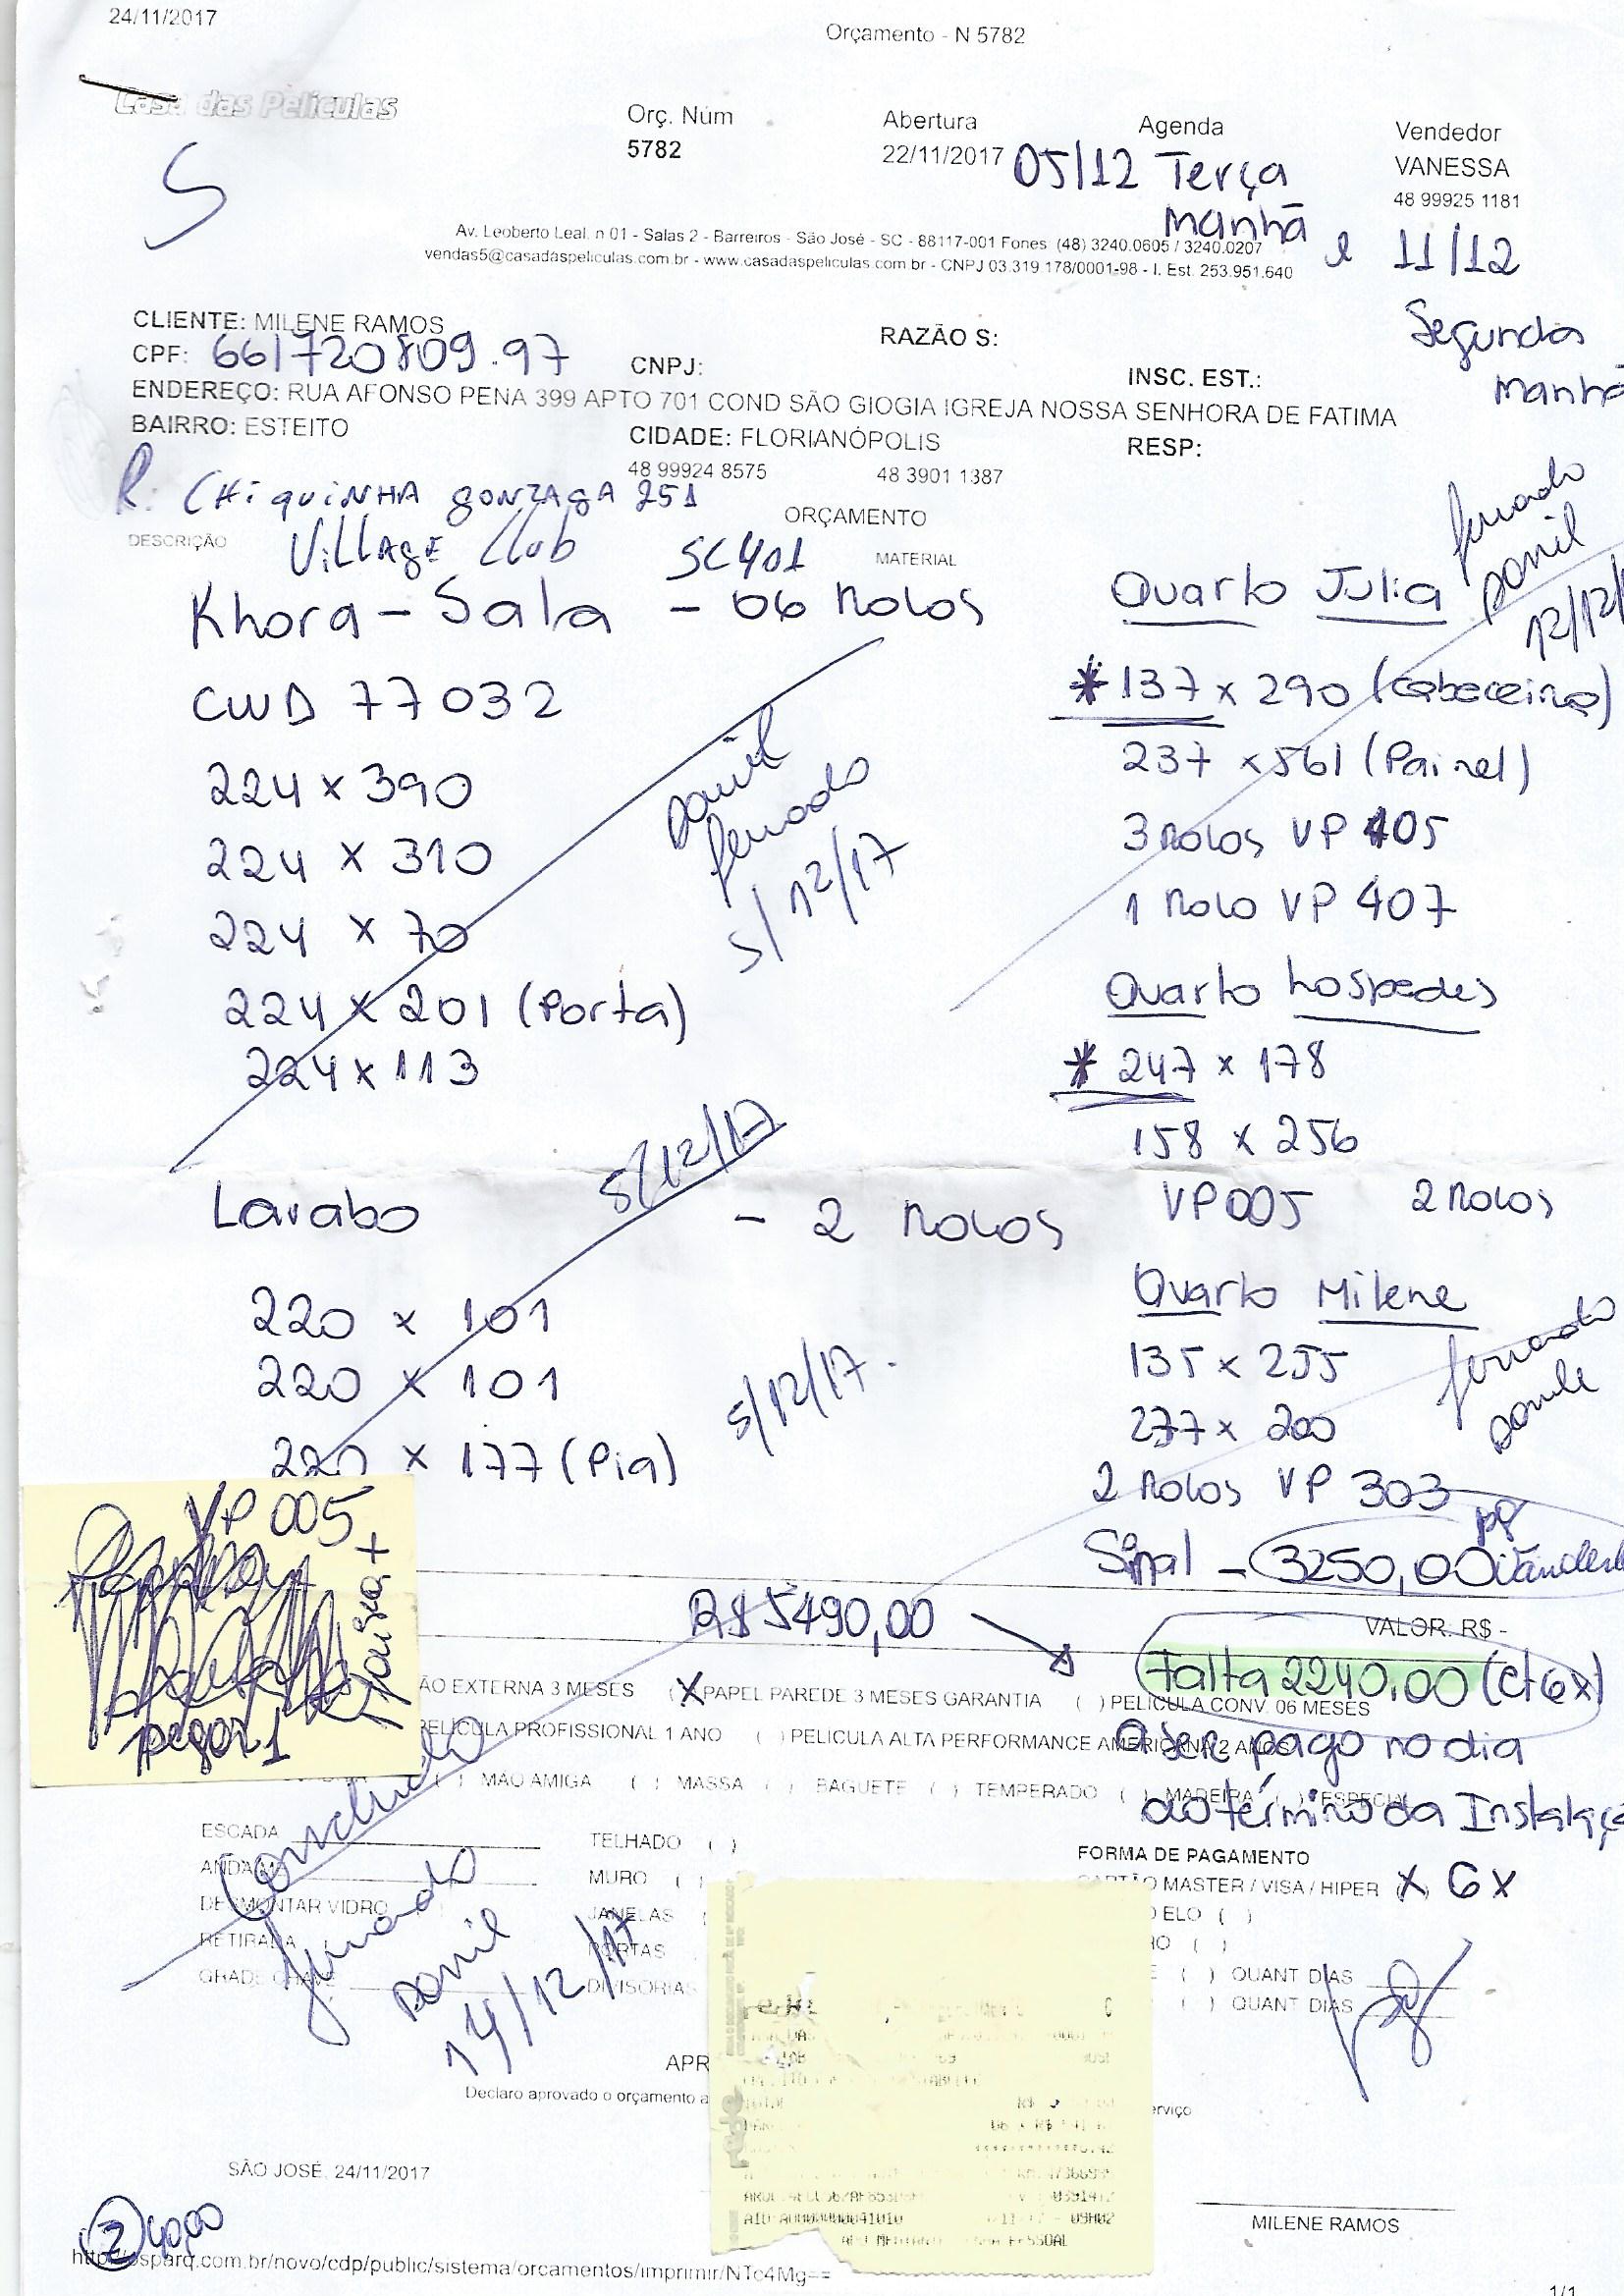 24/11/2017
Orçamento - N 5782
Casa das Películas
Orç. Núm
5782
Abertura
22/11/2017
Agenda
05/12 Terça
Manhã
e 11/12
Segunda
Manhã
Vendedor
VANESSA
48 99925 1181
S
Av. Leoberto Leal, n 01 - Salas 2 - Barreiros - São José - SC - 88117-001 Fones (48) 3240.0605 / 3240.0207
vendas5@casadaspeliculas.com.br - www.casadaspeliculas.com.br - CNPJ 03.319.178/0001-98 - I. Est. 253.951.640
CLIENTE: MILENE RAMOS
RAZÃO S:
CPF: 661720809.97
CNPJ:
INSC. EST.:
ENDEREÇO: RUA AFONSO PENA 399 APTO 701 COND SÃO GIOGIA IGREJA NOSSA SENHORA DE FATIMA
BAIRRO: ESTEITO
CIDADE: FLORIANÓPOLIS
RESP:
48 99924 8575
48 3901 1387
R. CHiquiNHA gONZAgA 251
ORÇAMENTO
DESCRIÇÃO
VillAgE Club SC401
MATERIAL
Khora - Sala - 06 Rolos
CWD 77032
224 x 390
224 x 310
224 x 70
224 x 201 (Porta)
224 x 113
5/12/17
Lavabo - 2 Rolos
5/12/17
220 x 101
220 x 101
220 x 177 (Pia)
5/12/17.
Quarto Julia
12/12/
* 137 x 290 (Cabeceira)
237 x 561 (Painel)
3 Rolos VP 405
1 Rolo VP 407
Quarto hospedes
* 247 x 178
158 x 256
VP005 2 Rolos
Quarto Milene
135 x 255
277 x 200
2 Rolos VP 303
Sinal - 3250,00
pg
VP 005
pegar 1
R$ 5490,00
VALOR: R$ -
Falta 2240,00 (Ct 6x)
A ser pago no dia
do término da Instalaç
ÃO EXTERNA 3 MESES (X PAPEL PAREDE 3 MESES GARANTIA ( ) PELÍCULA CONV. 06 MESES
PELÍCULA PROFISSIONAL 1 ANO ( ) PELICULA ALTA PERFORMANCE AMERICANA 2 ANOS
( ) MÃO AMIGA ( ) MASSA ( ) BAGUETE ( ) TEMPERADO ( ) MADEIRA ( ) ESPECIAL
ESCADA
TELHADO ( )
ANDAIME
MURO ( )
DESMONTAR VIDRO
JANELAS
RETIRADA
PORTAS
GRADE CHAVE
DIVISÓRIAS
Concluído
14/12/17
FORMA DE PAGAMENTO
MASTER / VISA / HIPER (X) 6x
ELO ( )
( )
( ) QUANT DIAS
( ) QUANT DIAS
APR
Declaro aprovado o orçamento a
erviço
SÃO JOSÉ, 24/11/2017
MILENE RAMOS
2240,00
http://osparq.com.br/novo/cdp/public/sistema/orcamentos/imprimir/NTc4Mg==
1/1